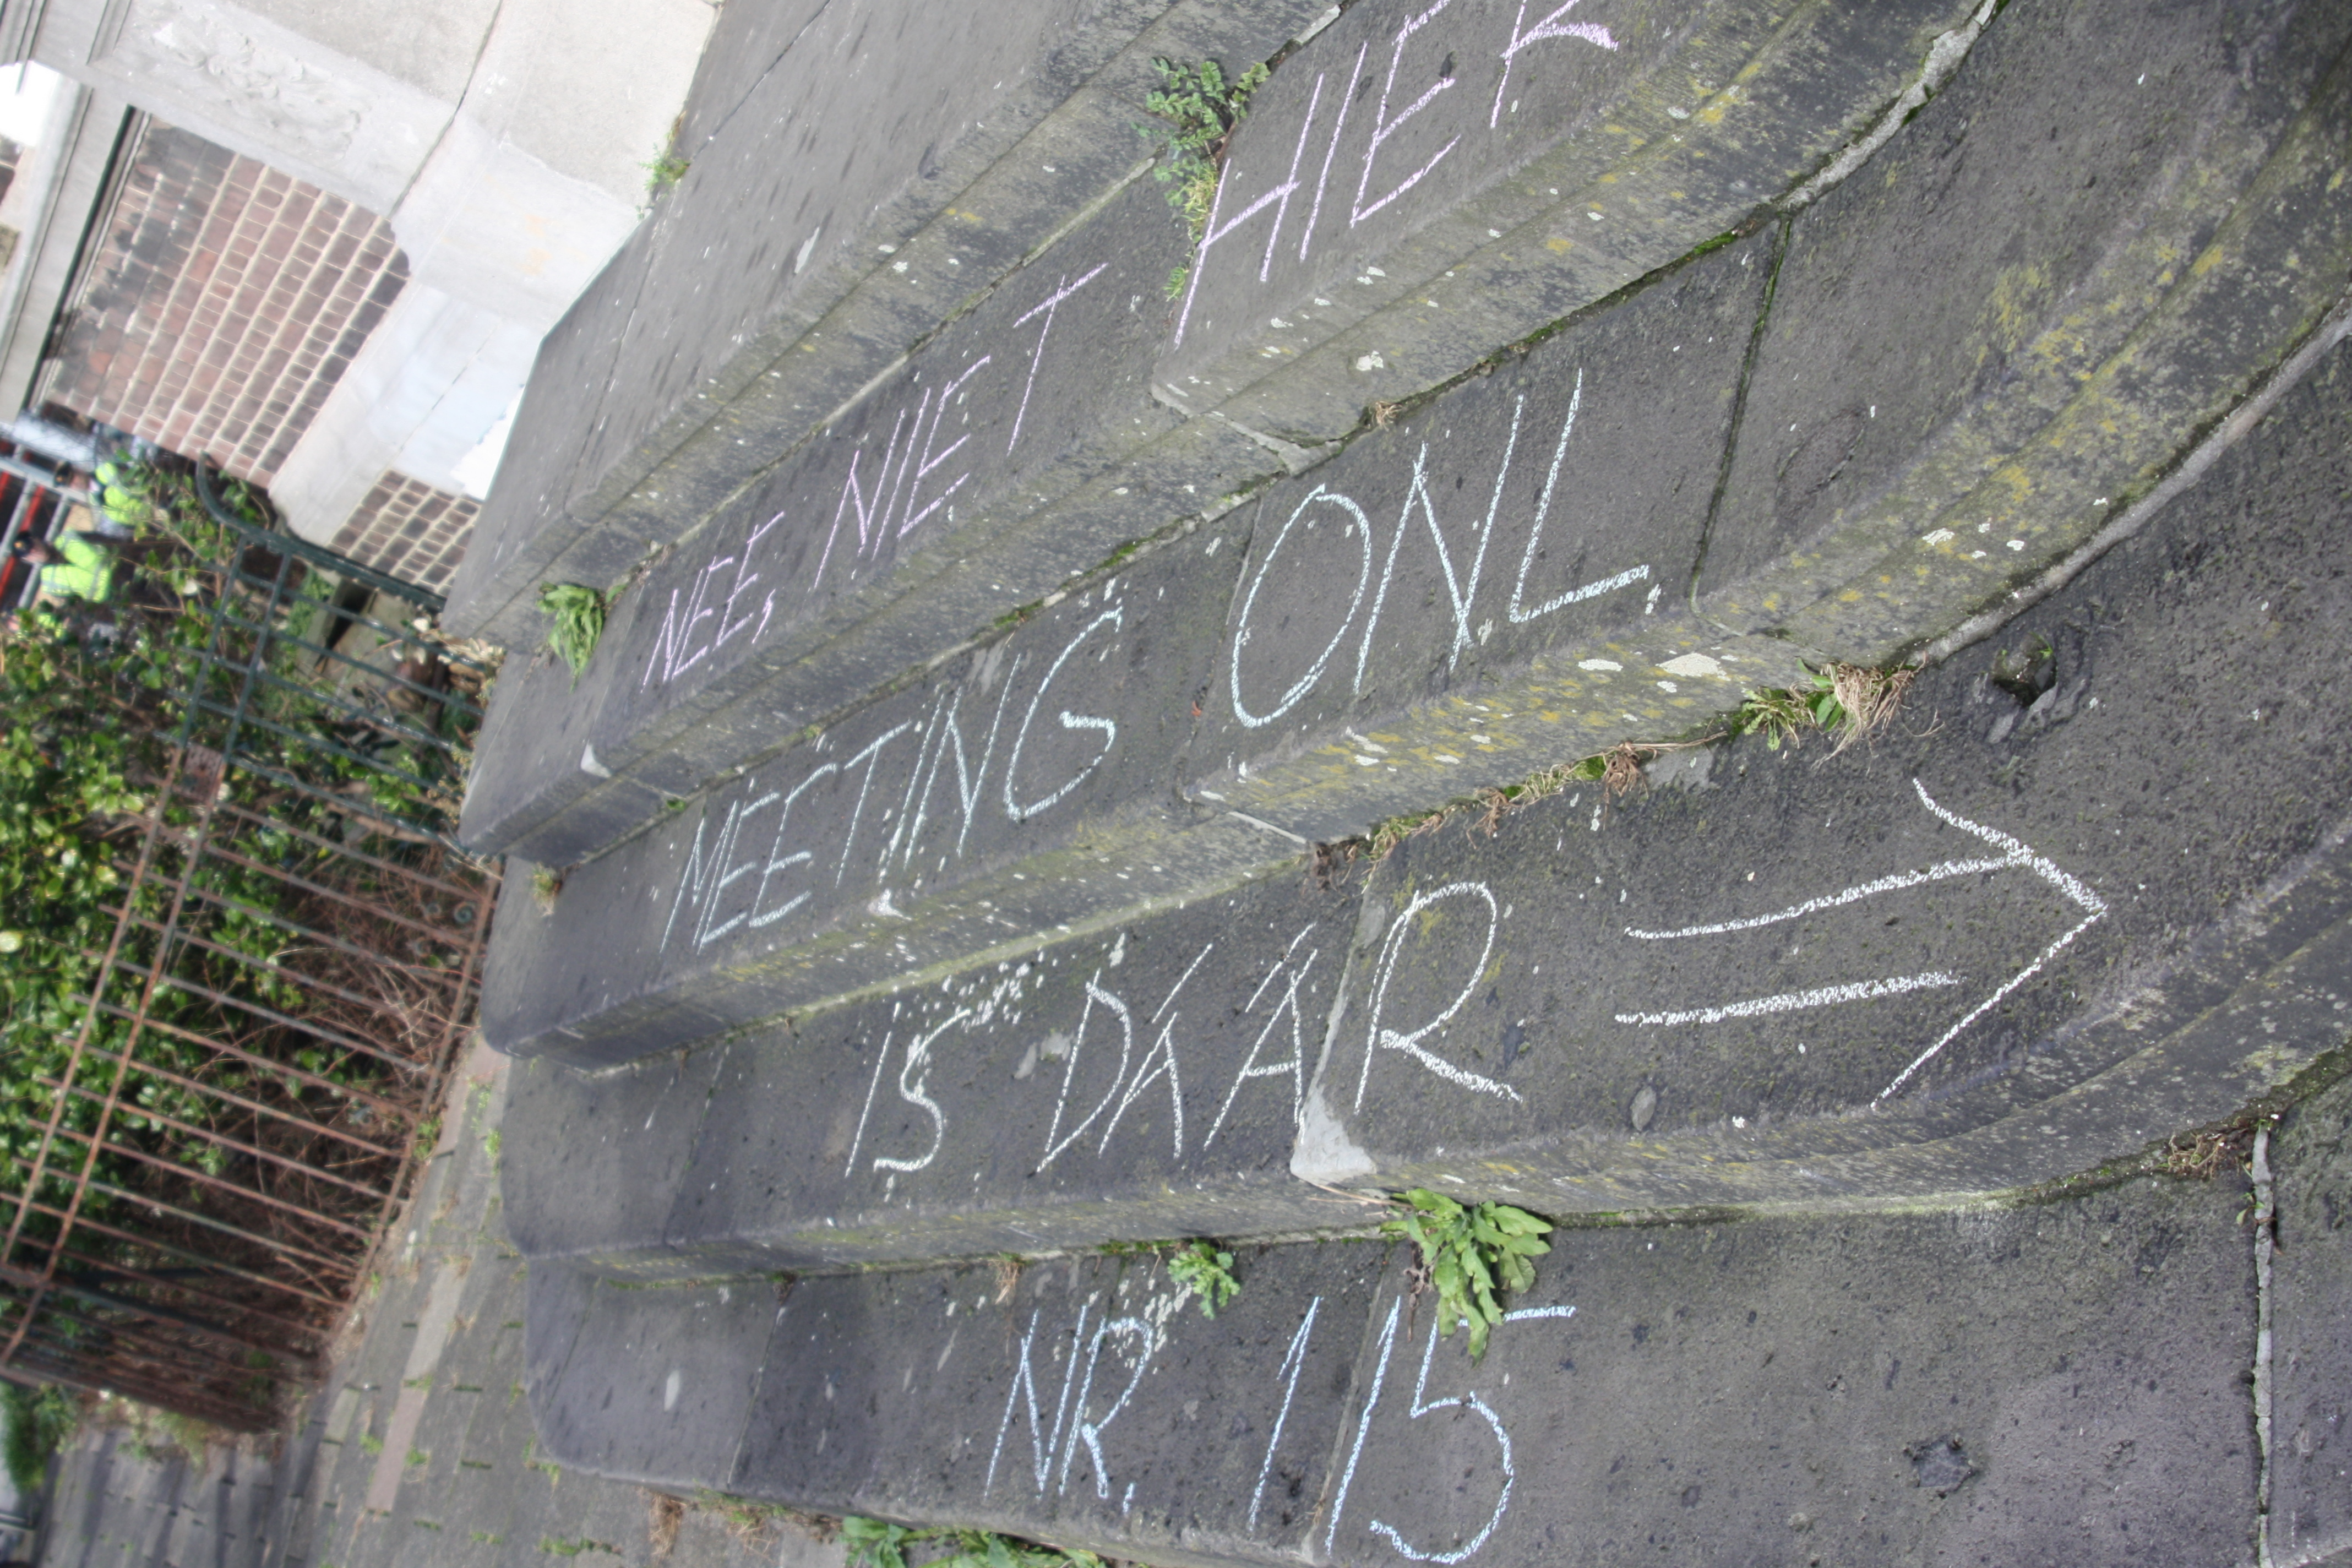 NEE, NIET HIER
MEETING ONL.
IS DÁÁR ⇒
NR. 115